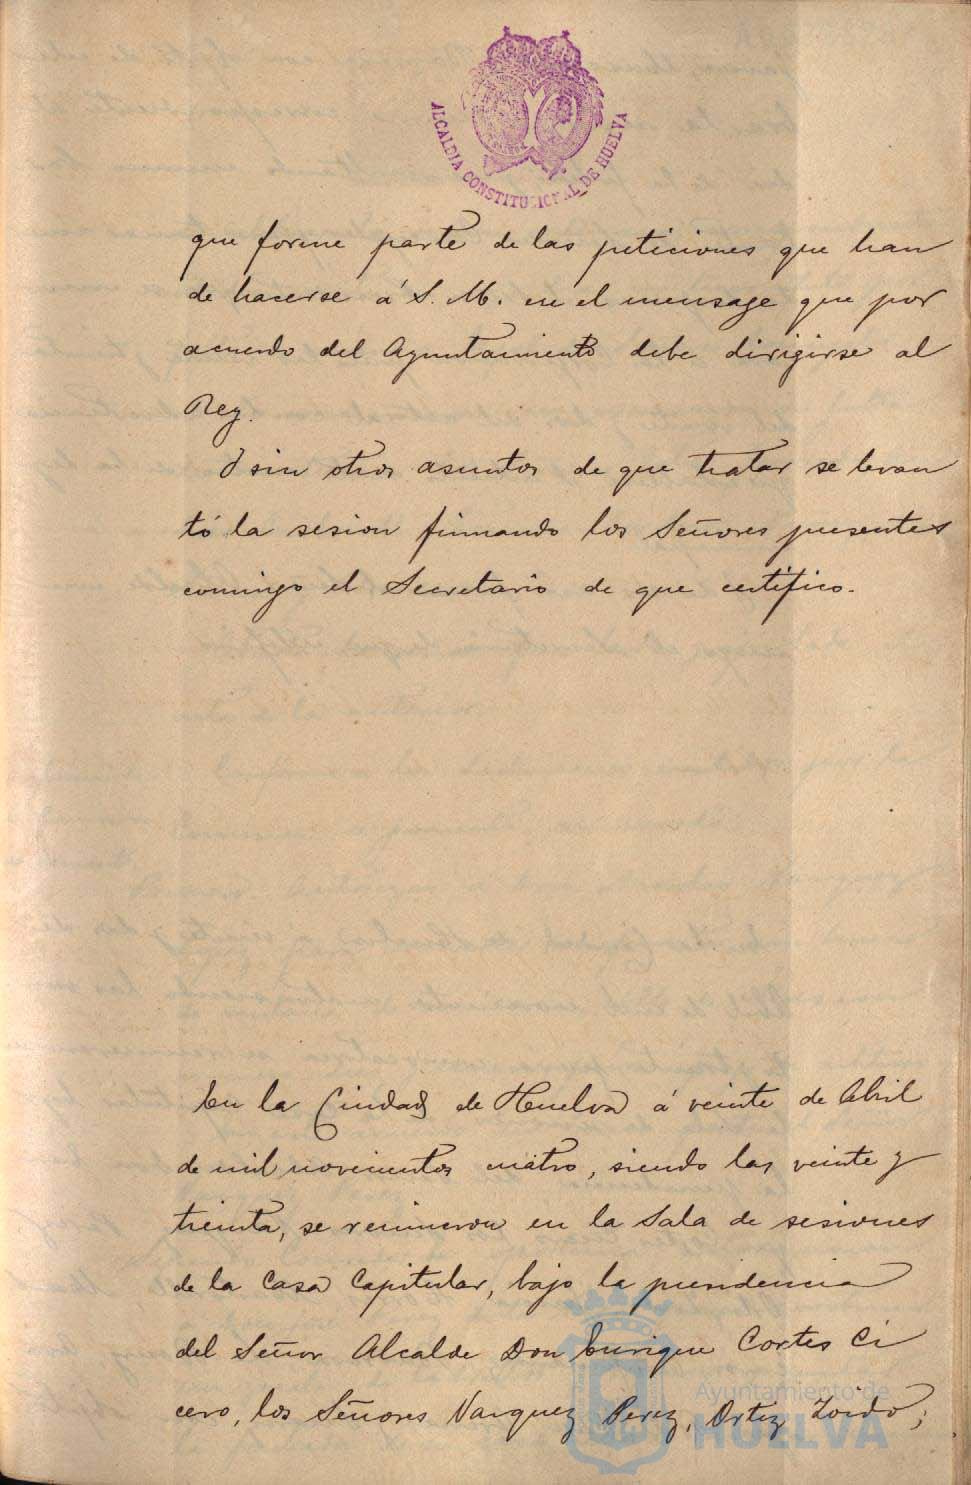 ALCALDIA CONSTITUCIONAL DE HUELVA
que forme parte de las peticiones que han
de hacerse á S. M. en el mensage que por
acuerdo del Ayuntamiento debe dirigirse al
Rey.
Y sin otros asuntos de que tratar se levan
tó la sesion firmando los Señores presentes
comingo el Secretario de que certifico.
En la Ciudad de Huelva á veinte de Abril
de mil novecientos cuatro, siendo las veinte y
treinta, se reunieron en la Sala de sesiones
de la Casa Capitular, bajo la presidencia
del Señor Alcalde Don Enrique Cortes Ci
cero, los Señores Vazquez Perez, Ortiz Zoido,
Ayuntamiento de
HUELVA